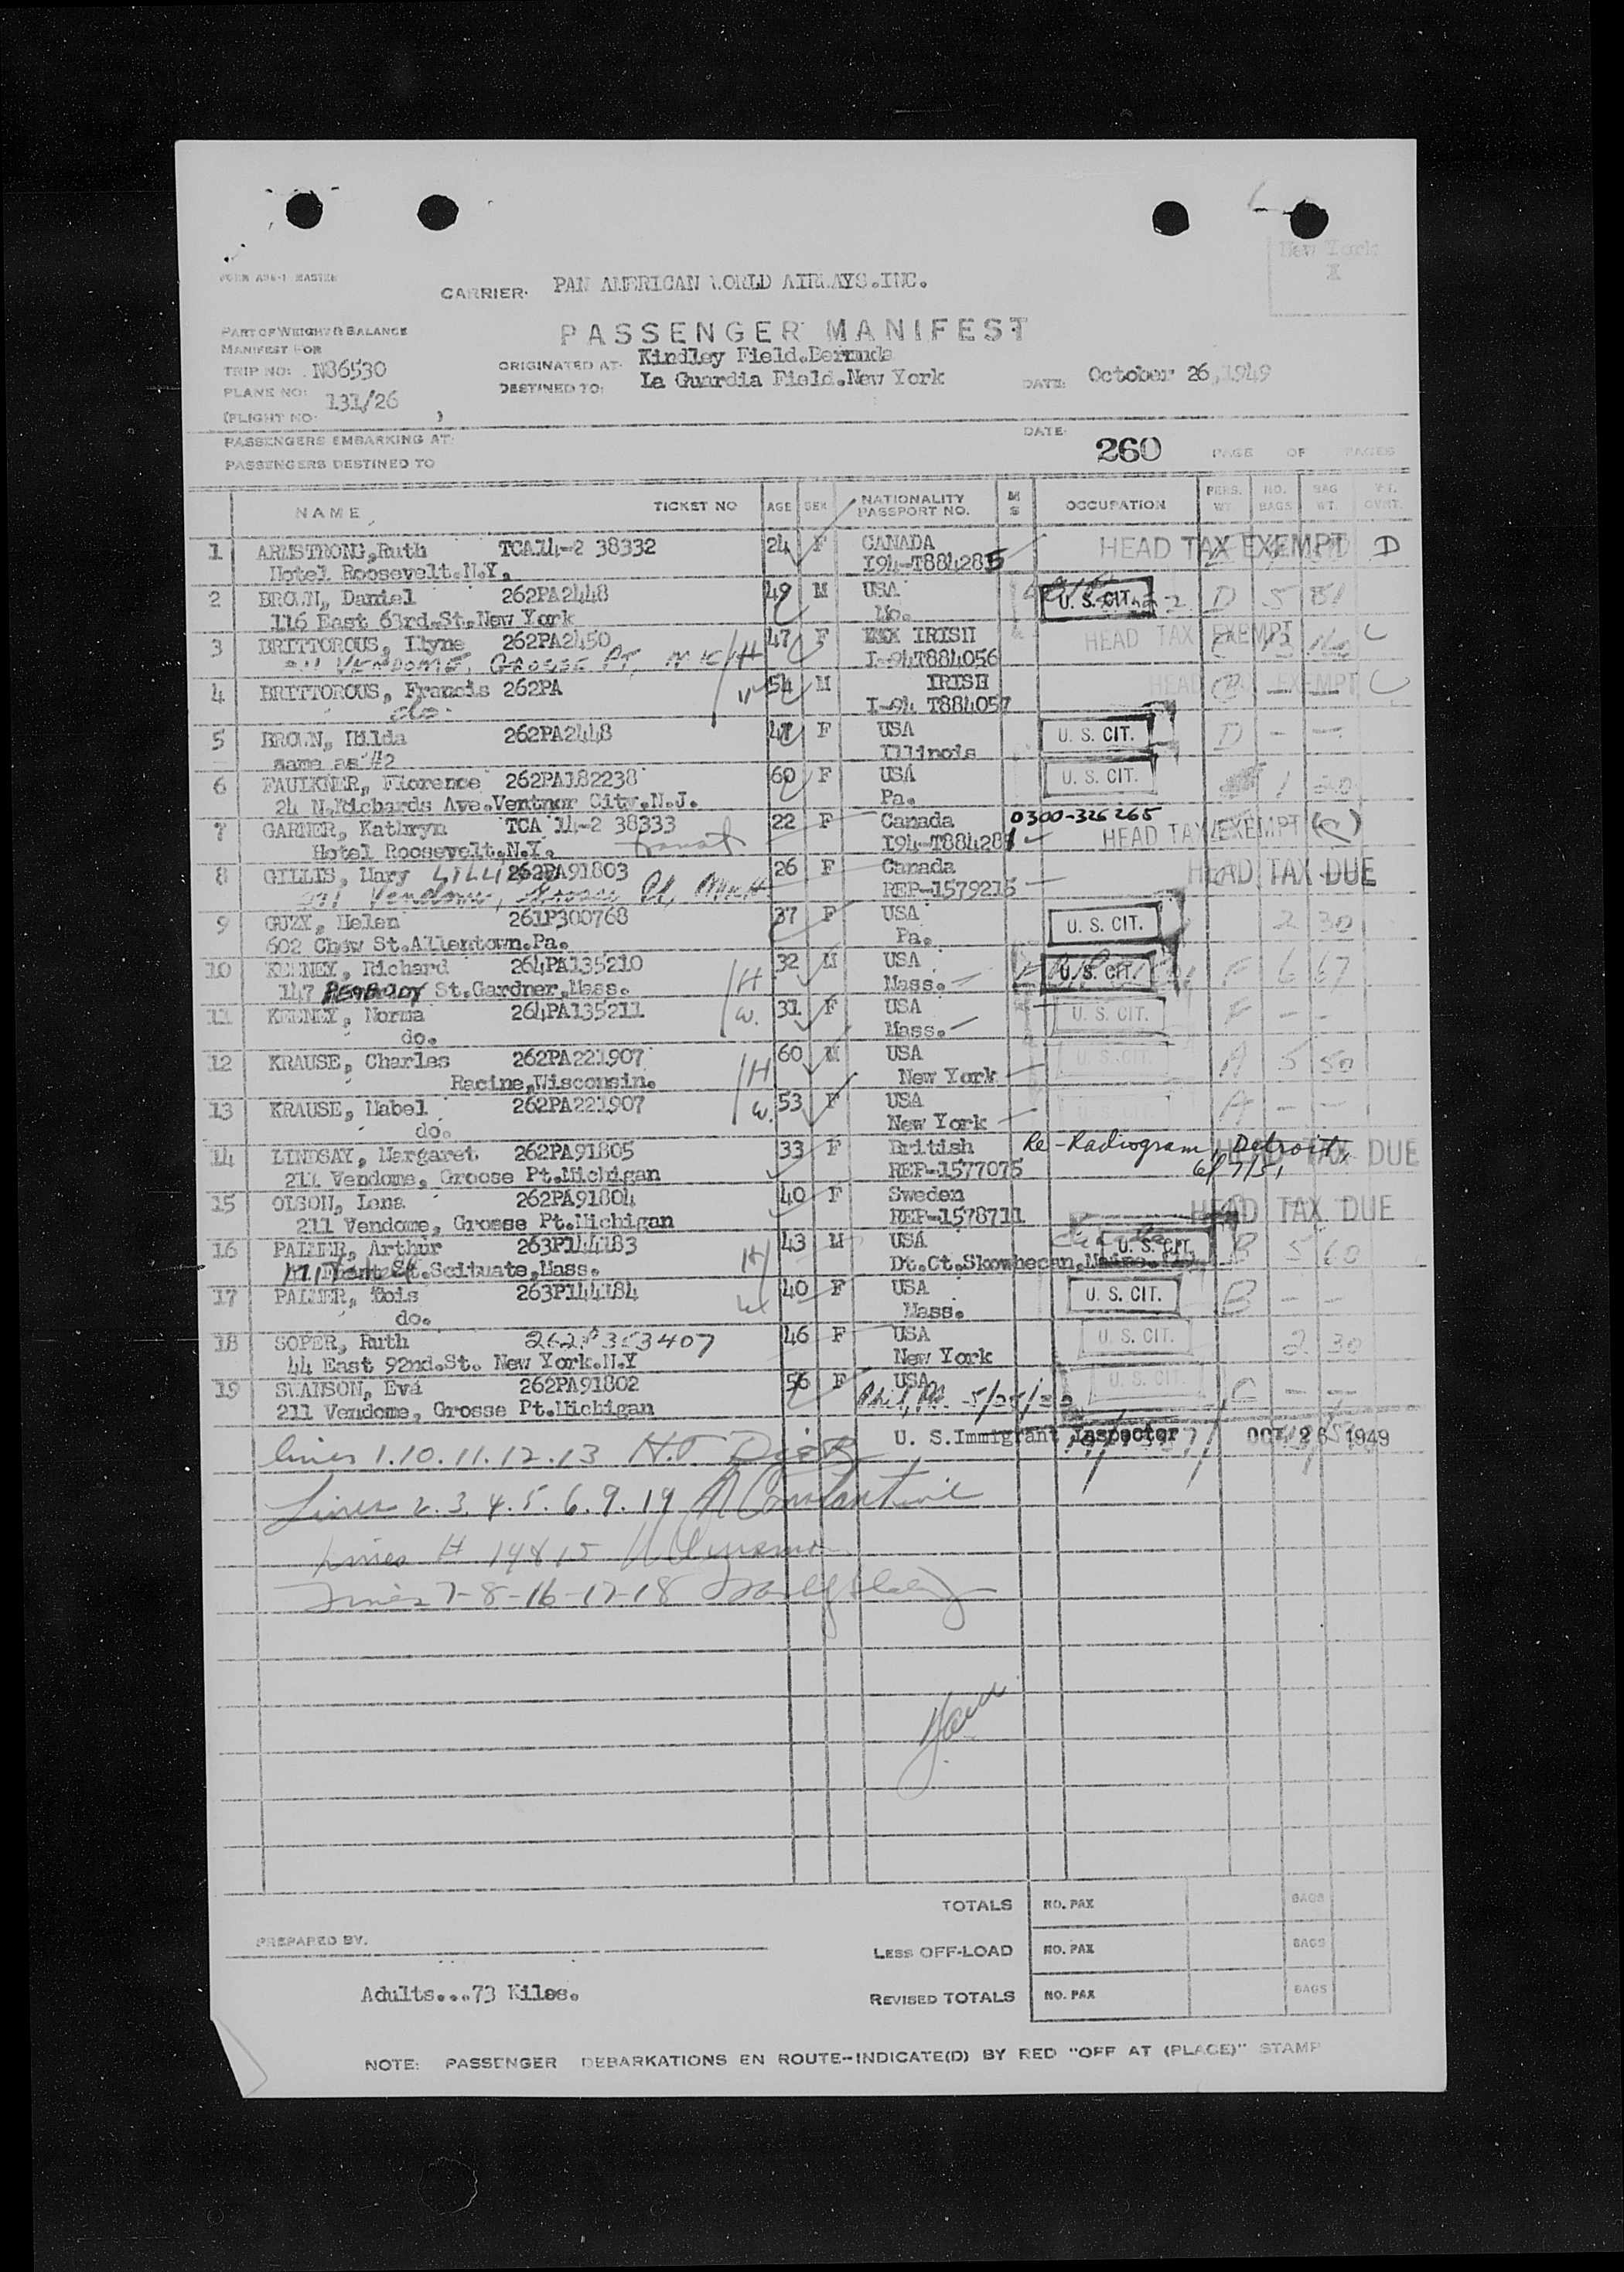 New York
X
FORM ASK-1 MASTER
CARRIER: PAN AMERICAN WORLD AIRWAYS.INC.
PASSENGER MANIFEST
PART OF WEIGHT & BALANCE
MANIFEST FOR
TRIP NO: N86530
ORIGINATED AT: Kindley Field.Bermuda
PLANE NO: 131/26
DESTINED TO: La Guardia Field.New York
DATE: October 26,1949
(FLIGHT NO: )
PASSENGERS EMBARKING AT:
DATE:
PASSENGERS DESTINED TO
260 PAGE OF PAGES
NAME TICKET NO AGE SEX NATIONALITY PASSPORT NO. M S OCCUPATION PERS. WT. NO. BAGS BAG WT. WT. OVRT.
1 ARMSTRONG,Ruth TCA14-2 38332 24 F CANADA HEAD TAX EXEMPT D
Hotel Roosevelt.N.Y. I94-T884285
2 BROWN, Daniel 262PA2448 49 M USA U. S. CIT. D 5 81
116 East 63rd.St.New York Mo.
3 BRITTOROUS, Ilyne 262PA2450 47 F IRISH HEAD TAX EXEMPT C
211 VENDOME, GROSSE PT, MICH I-94T884056
4 BRITTOROUS, Francis 262PA 54 M IRISH HEAD EXEMPT C
do. I-94 T884057
5 BROWN, Hilda 262PA2448 47 F USA U. S. CIT. D - -
same as #2 Illinois
6 FAULKNER, Florence 262PA182238 60 F USA U. S. CIT. 1 20
24 N.Richards Ave.Ventnor City.N.J. Pa.
7 GARNER, Kathryn TCA 14-2 38333 22 F Canada 0300-326265 HEAD TAX EXEMPT (C)
Hotel Roosevelt.N.Y. I94-T88428
8 GILLIS, Mary 262PA91803 26 F Canada HEAD TAX DUE
211 Vendome, Grosse Pt, Mich REP-1579215
9 GUZY, Helen 261P300768 37 F USA U. S. CIT. 2 30
602 Chew St.Allentown.Pa. Pa.
10 KEENEY, Richard 264PA135210 H 32 M USA U. S. CIT. F 6 67
147 PEABODY St.Gardner,Mass. Mass.
11 KEENEY, Norma 264PA135211 W. 31 F USA U. S. CIT. F - -
do. Mass.
12 KRAUSE, Charles 262PA221907 H 60 M USA U. S. CIT. A 5 50
Racine,Wisconsin. New York
13 KRAUSE, Mabel 262PA221907 W. 53 F USA A - -
do. New York
14 LINDSAY, Margaret 262PA91805 33 F British Re-Radiogram, Detroit, HEAD TAX DUE
211 Vendome, Groose Pt.Michigan REP-1577075 6/7/51
15 OLSON, Lena 262PA91804 40 F Sweden HEAD TAX DUE
211 Vendome, Grosse Pt.Michigan REP-1578711
16 PALMER, Arthur 263P144183 H 43 M USA U. S. CIT. B 5 60
Front St.Scituate,Mass. Dt.Ct.Skowhegan,Maine.
17 PALMER, Lois 263P144184 W 40 F USA U. S. CIT. B - -
do. Mass.
18 SOPER, Ruth 262P353407 46 F USA U. S. CIT. 2 30
44 East 92nd.St. New York.N.Y New York
19 SWANSON, Eva 262PA91802 56 F USA U. S. CIT. C - -
211 Vendome, Grosse Pt.Michigan
U. S.Immigrant Inspector OCT 26 1949
lines 1.10.11.12.13 H.J.
Lines 2.3.4.5.6.9.19 Constantine
Lines # 14 & 15
Lines 7-8-16-17-18
TOTALS NO. PAX BAGS
PREPARED BY.
LESS OFF-LOAD NO. PAX BAGS
Adults...73 Kilos.
REVISED TOTALS NO. PAX BAGS
NOTE: PASSENGER DEBARKATIONS EN ROUTE--INDICATE(D) BY RED "OFF AT (PLACE)" STAMP